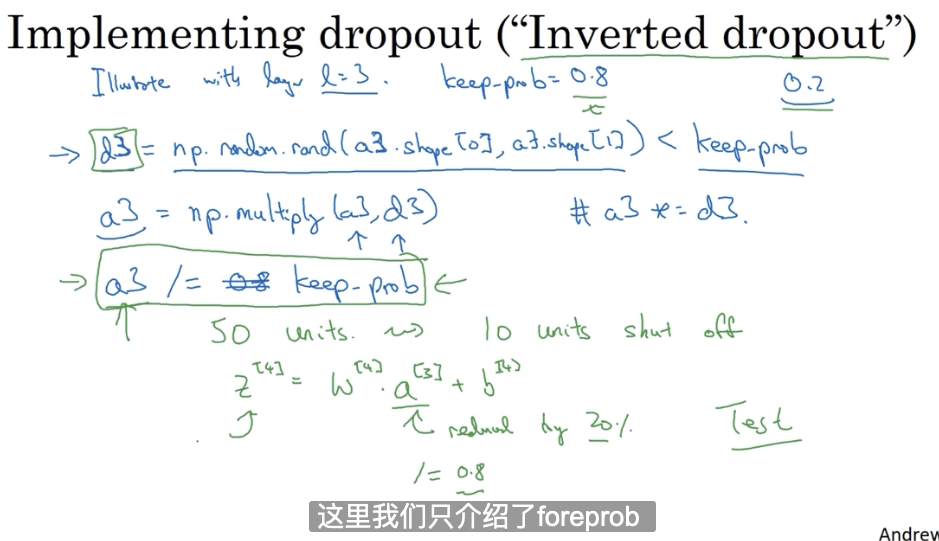 Implementing dropout (“Inverted dropout”)
Illustrate with layer l=3. keep-prob = 0.8 0.2
→ d3 = np.random.rand(a3.shape[0], a3.shape[1]) < keep-prob
a3 = np.multiply(a3, d3) # a3 *= d3.
→ a3 /= 0.8 keep-prob ←
50 units. ⇝ 10 units shut off
z[4] = W[4] · a[3] + b[4]
reduced by 20%. Test
/= 0.8
这里我们只介绍了foreprob
Andrew